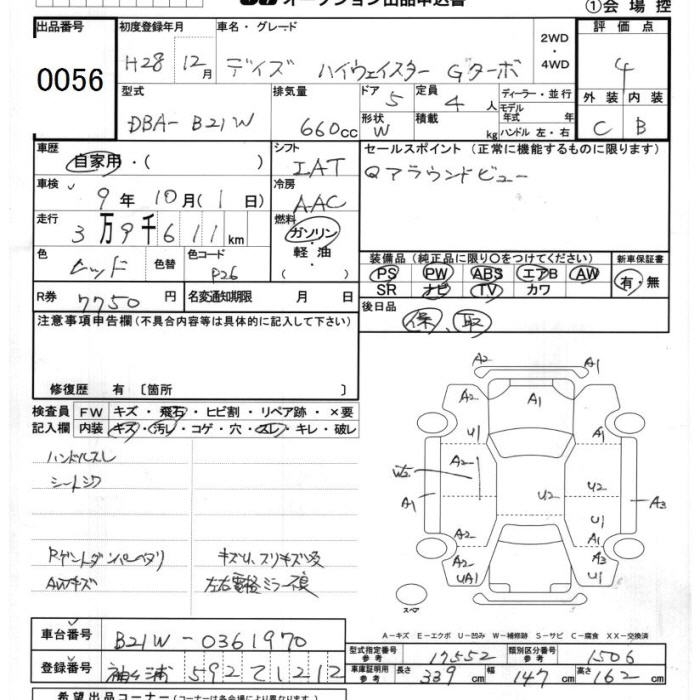 オークション出品申込書
①会場控
出品番号
0056
初度登録年月
H28 12月
車名・グレード
デイズ ハイウェイスター Gターボ
2WD・4WD
評価点
4
型式
DBA-B21W
排気量
660cc
ドア 5
定員 4人
形状 W
積載 kg
ディーラー・並行
モデル年式 年式
ハンドル 左・右
外装 内装
C B
車歴
自家用・( )
シフト
IAT
セールスポイント (正常に機能するものに限ります)
Qアラウンドビュー
車検
9年10月(1日)
冷房
AAC
走行
3万9千611km
燃料
ガソリン・軽油・( )
色
レッド
色替
色コード
P26
装備品 (純正品に限り○をつけてください)
新車保証書
PS PW ABS エアB AW
SR ナビ TV カワ
有・無
R券 7750円
名変通知期限 月 日
後日品
保、取
注意事項申告欄 (不具合内容等は具体的に記入して下さい)
修復歴 有 [箇所 ]
検査員記入欄
FW キズ・飛石・ヒビ割・リペア跡・×要
内装 キズ・汚レ・コゲ・穴・スレ・キレ・破レ
ハンドルスレ
シートシワ
Rゲートダンパーヘタリ
AWキズ
キズU、スリキズ汚
左右電格ミラー不良
A2 A1
A2 A1
U1 A1
A2 U2
W2
A1 U2 A3
U1
A2 A2 A1 A3
UA1 U1
スペア
A-キズ E-エクボ U-凹み W-補修跡 S-サビ C-腐食 XX-交換済
車台番号 B21W-0361970
登録番号 袖ヶ浦 592 て 1212
型式指定番号 参考 17552
類別区分番号 参考 1506
車庫証明用 参考 長さ 339cm 幅 147cm 高さ 162cm
希望出品コーナー (コーナーは各会場により異なります)